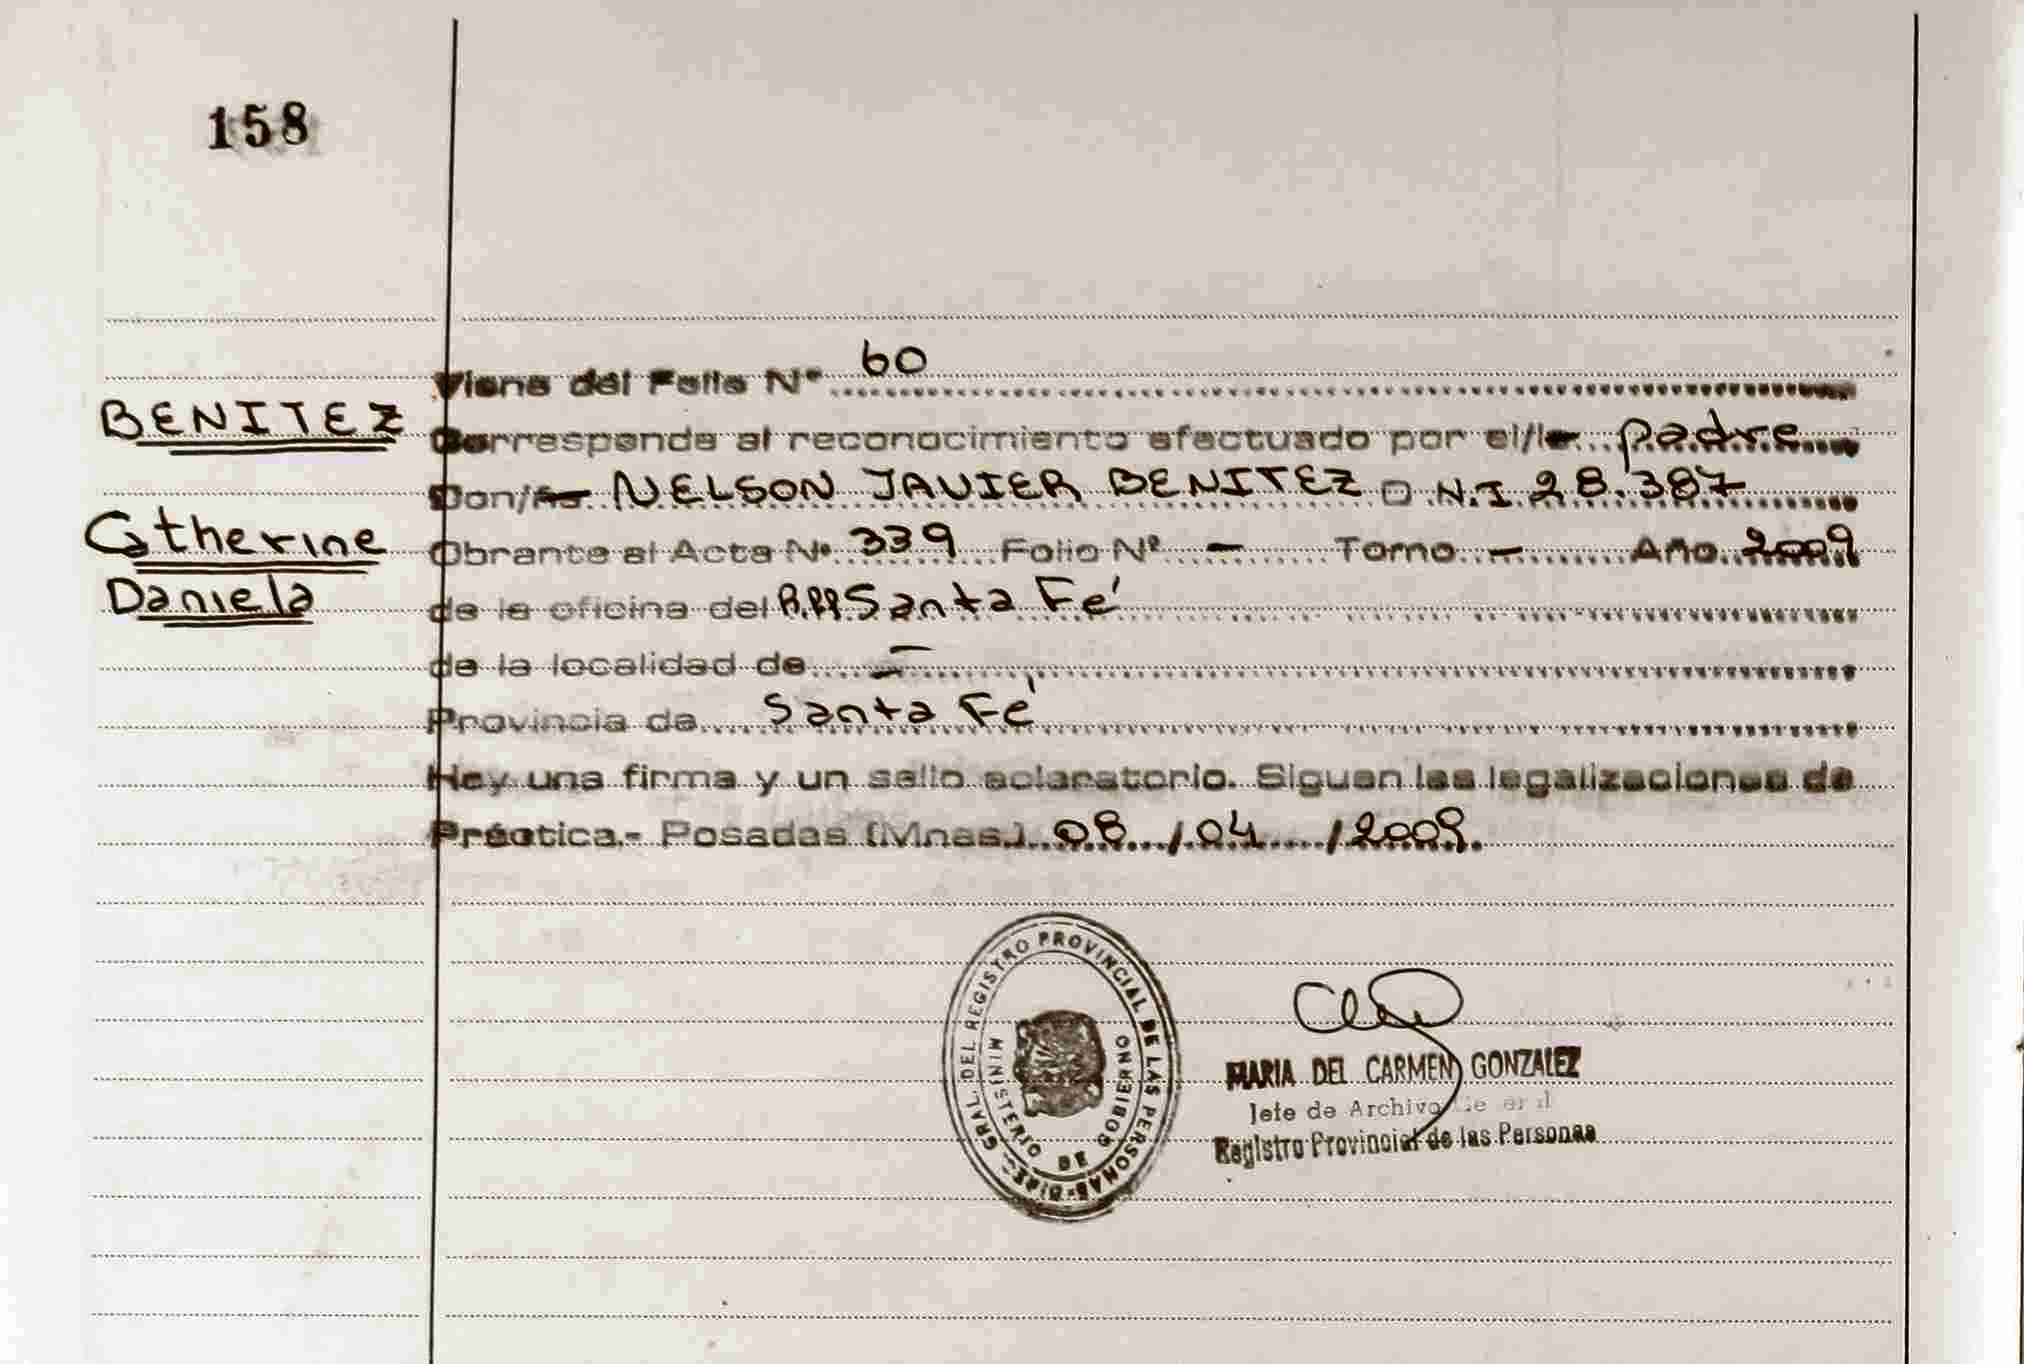 158
Viene del Folio Nº 60
BENITEZ
Corresponde al reconocimiento efectuado por el/la padre
Don/ña NELSON JAVIER BENITEZ D.N.I 28.387
Catherine
Obrante al Acta Nº 339 Folio Nº - Tomo - Año 2009
Daniela
de la oficina del R.PP Santa Fé
de la localidad de -
Provincia de Santa Fé
Hay una firma y un sello aclaratorio. Siguen las legalizaciones de
Práctica.- Posadas (Mnes.) 08/04/2009.
GRAL. DEL REGISTRO PROVINCIAL DE LAS PERSONAS
MINISTERIO DE GOBIERNO
MARIA DEL CARMEN GONZALEZ
Jefe de Archivo General
Registro Provincial de las Personas